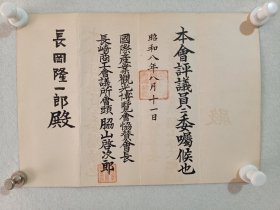 本會評議員ニ委囑候也
昭和八年八月十一日
國際産業觀光博覽會協贊會長
長崎商工會議所會頭 脇山啓次郎
長岡隆一郎殿